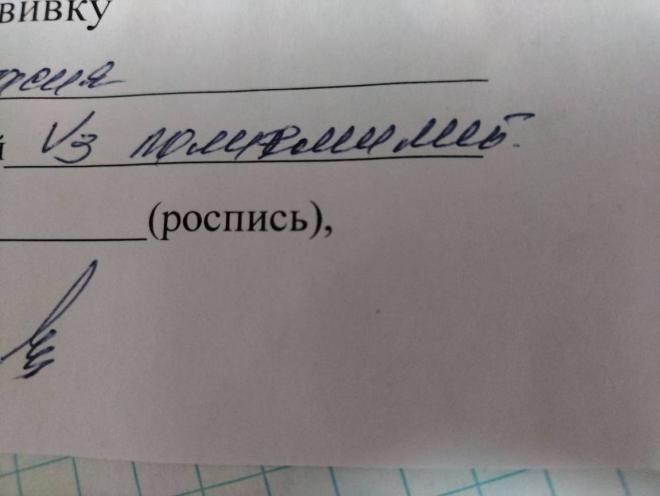 вивку
й V3 полиомиелит.
(роспись),